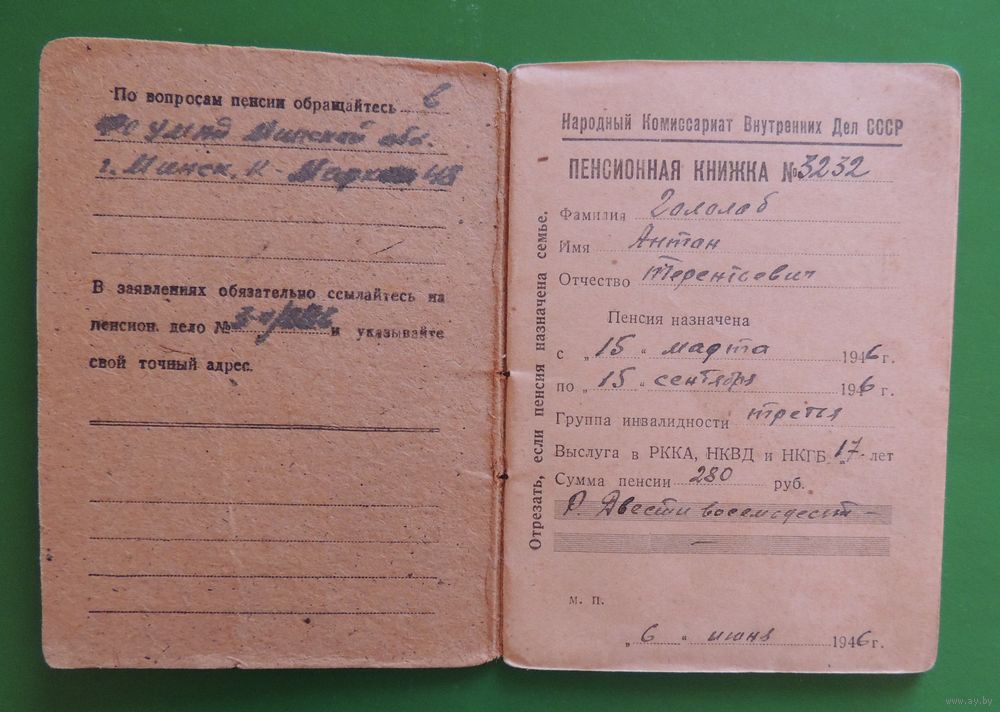 По вопросам пенсии обращайтесь в
УМВД Минской обл.
г. Минск, К-Маркса 48
В заявлениях обязательно ссылайтесь на
пенсион. дело № и указывайте
свой точный адрес.
Отрезать, если пенсия назначена семье.
Народный Комиссариат Внутренних Дел СССР
ПЕНСИОННАЯ КНИЖКА № 3232
Фамилия Гололоб
Имя Антан
Отчество Терентьевич
Пенсия назначена
с „15" марта 1946 г.
по „15" сентября 1946 г.
Группа инвалидности третья
Выслуга в РККА, НКВД и НКГБ 17 лет
Сумма пенсии 280 руб.
Р. Двести восемьдесят —
—
м. п.
„6" июня 1946 г.
www.ay.by